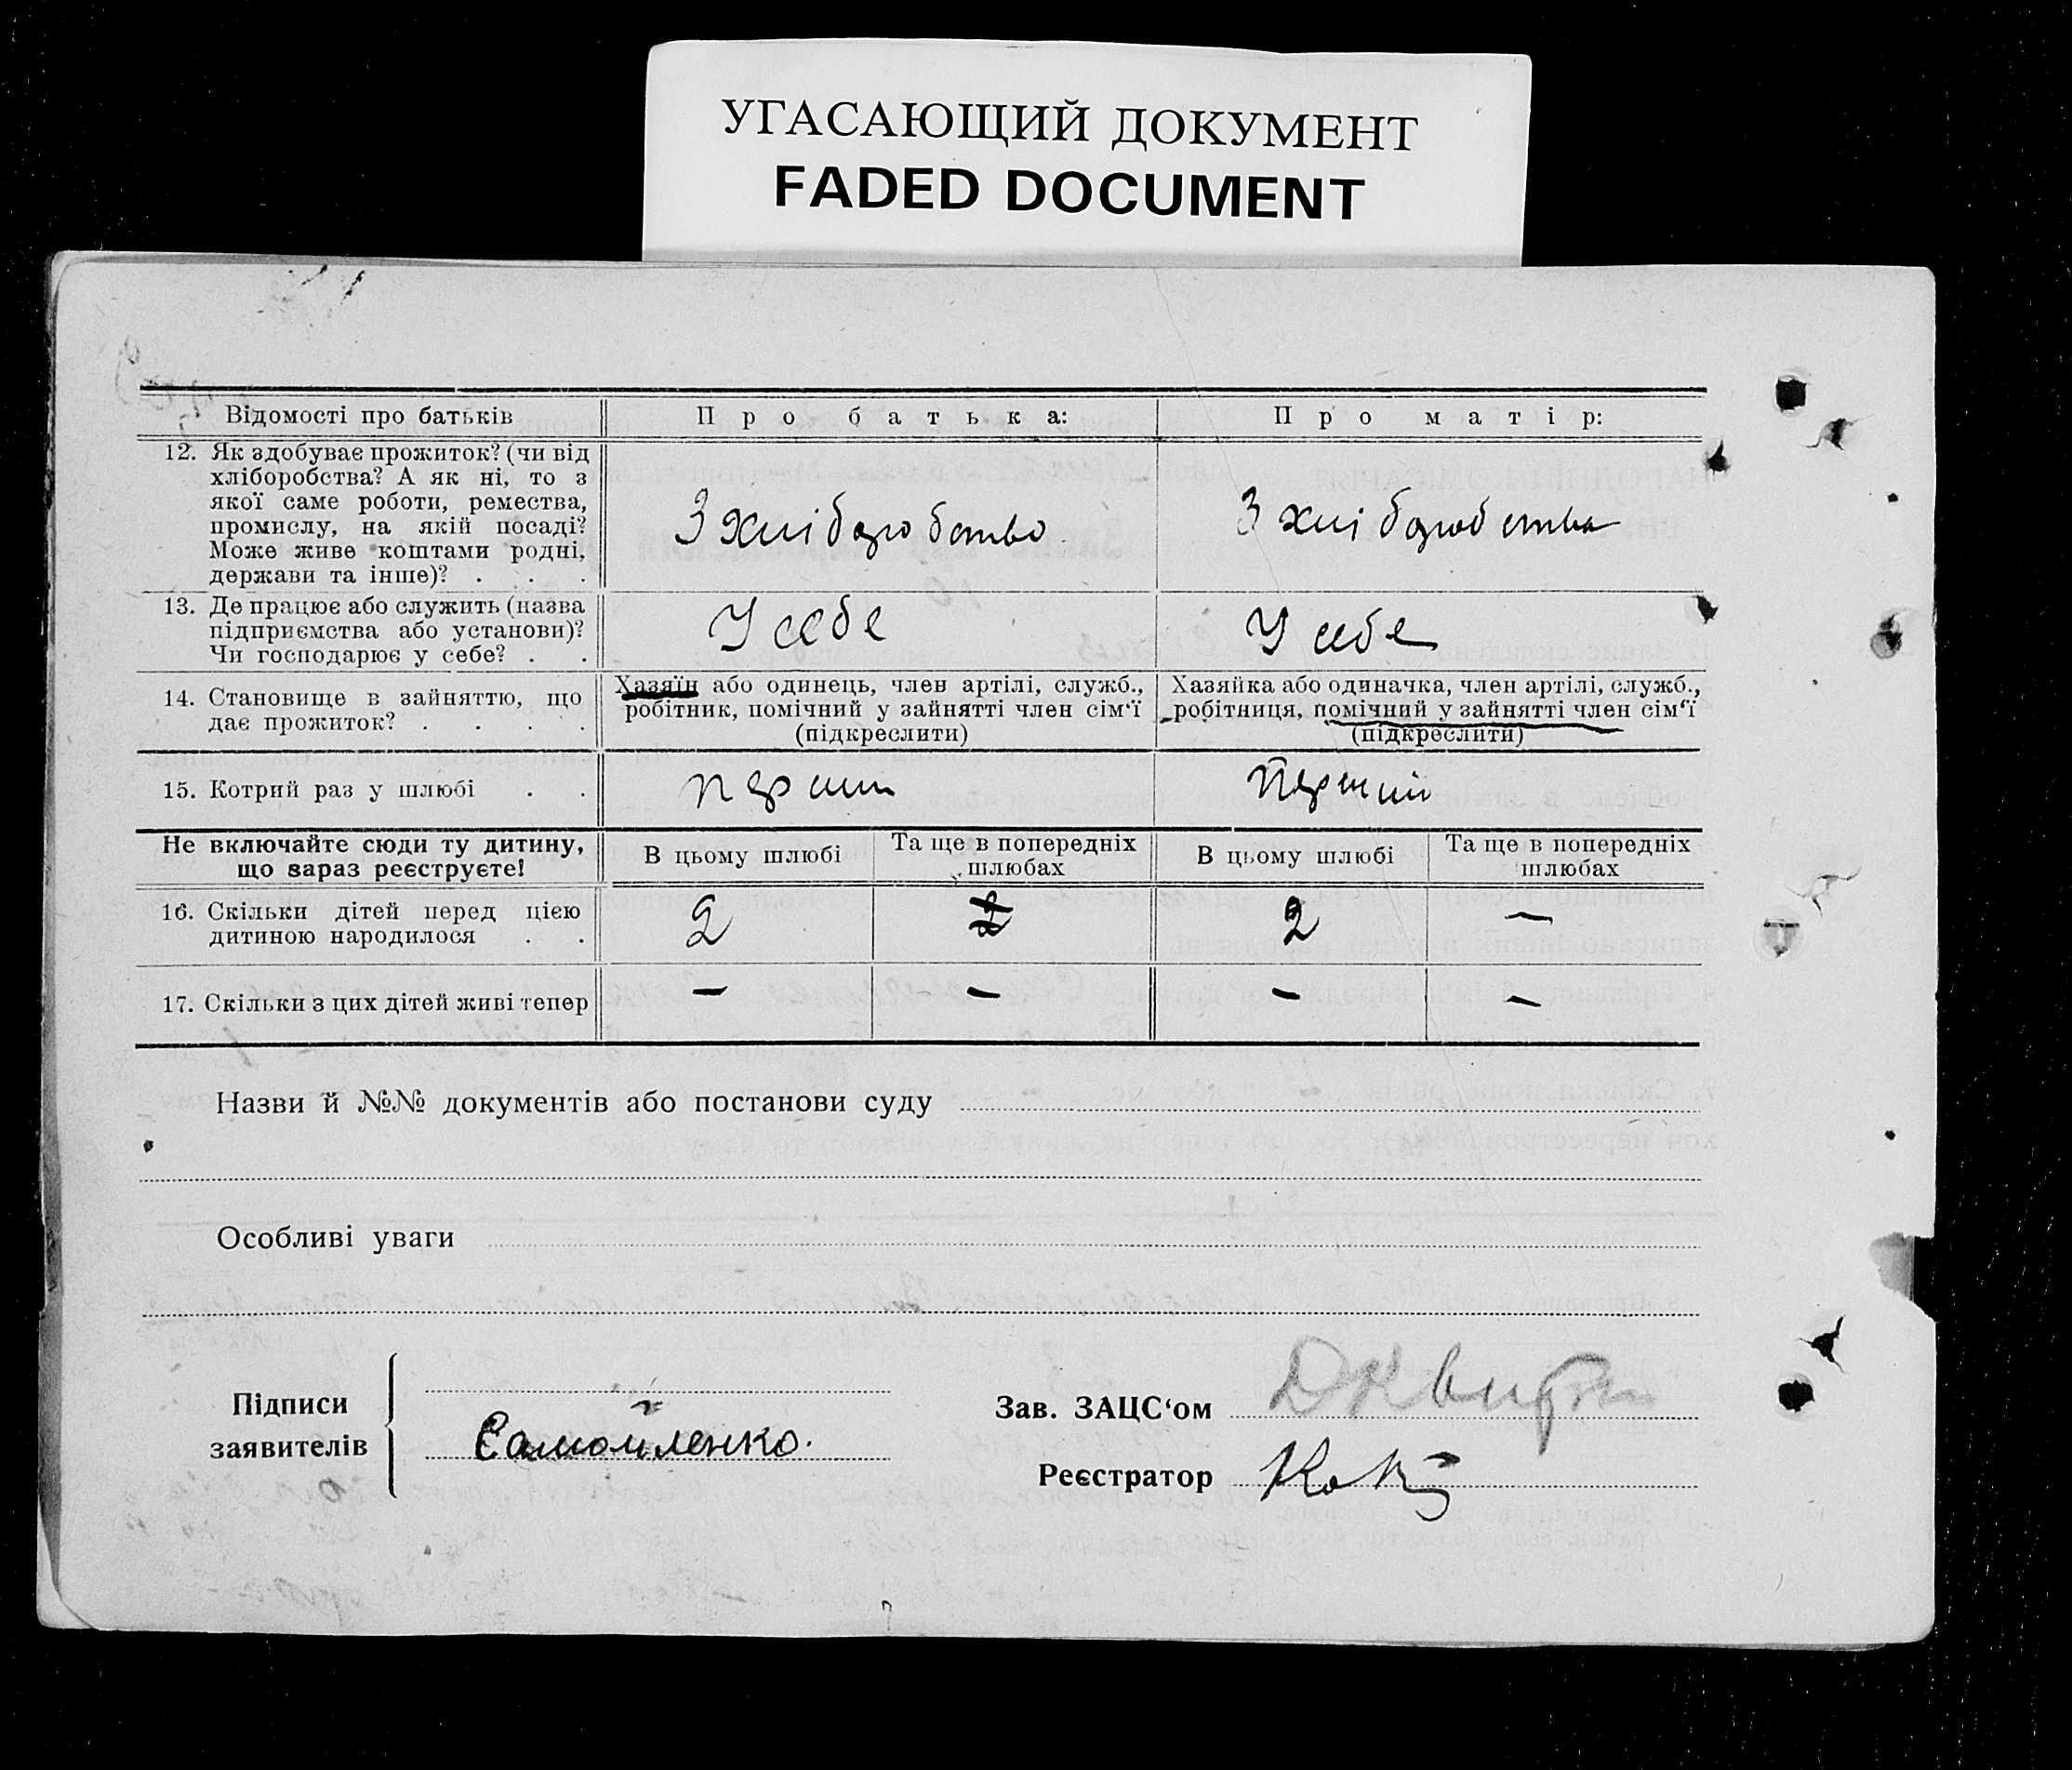 УГАСАЮЩИЙ ДОКУМЕНТ
FADED DOCUMENT
Відомості про батьків
Про батька:
Про матір:
12. Як здобуває прожиток? (чи від
хліборобства? А як ні, то з
якої саме роботи, ремества,
промислу, на якій посаді?
Може живе коштами родні,
держави та інше)? . . .
З хліборобство
З хліборобства
13. Де працює або служить (назва
підприємства або установи)?
Чи господарює у себе? . .
У себе
У себе
14. Становище в зайняттю, що
дає прожиток? . . . .
Хазяїн або одинець, член артілі, служб.,
робітник, помічний у зайнятті член сім'ї
(підкреслити)
Хазяйка або одиначка, член артілі, служб.,
робітниця, помічний у зайнятті член сім'ї
(підкреслити)
15. Котрий раз у шлюбі . .
перший
Перший
Не включайте сюди ту дитину,
що зараз реєструєте!
В цьому шлюбі
Та ще в попередніх
шлюбах
В цьому шлюбі
Та ще в попередніх
шлюбах
16. Скільки дітей перед цією
дитиною народилося . .
2
2
2
—
17. Скільки з цих дітей живі тепер
—
—
—
—
Назви й №№ документів або постанови суду
Особливі уваги
Підписи
заявителів
Самойленко.
Зав. ЗАЦС'ом
Реєстратор